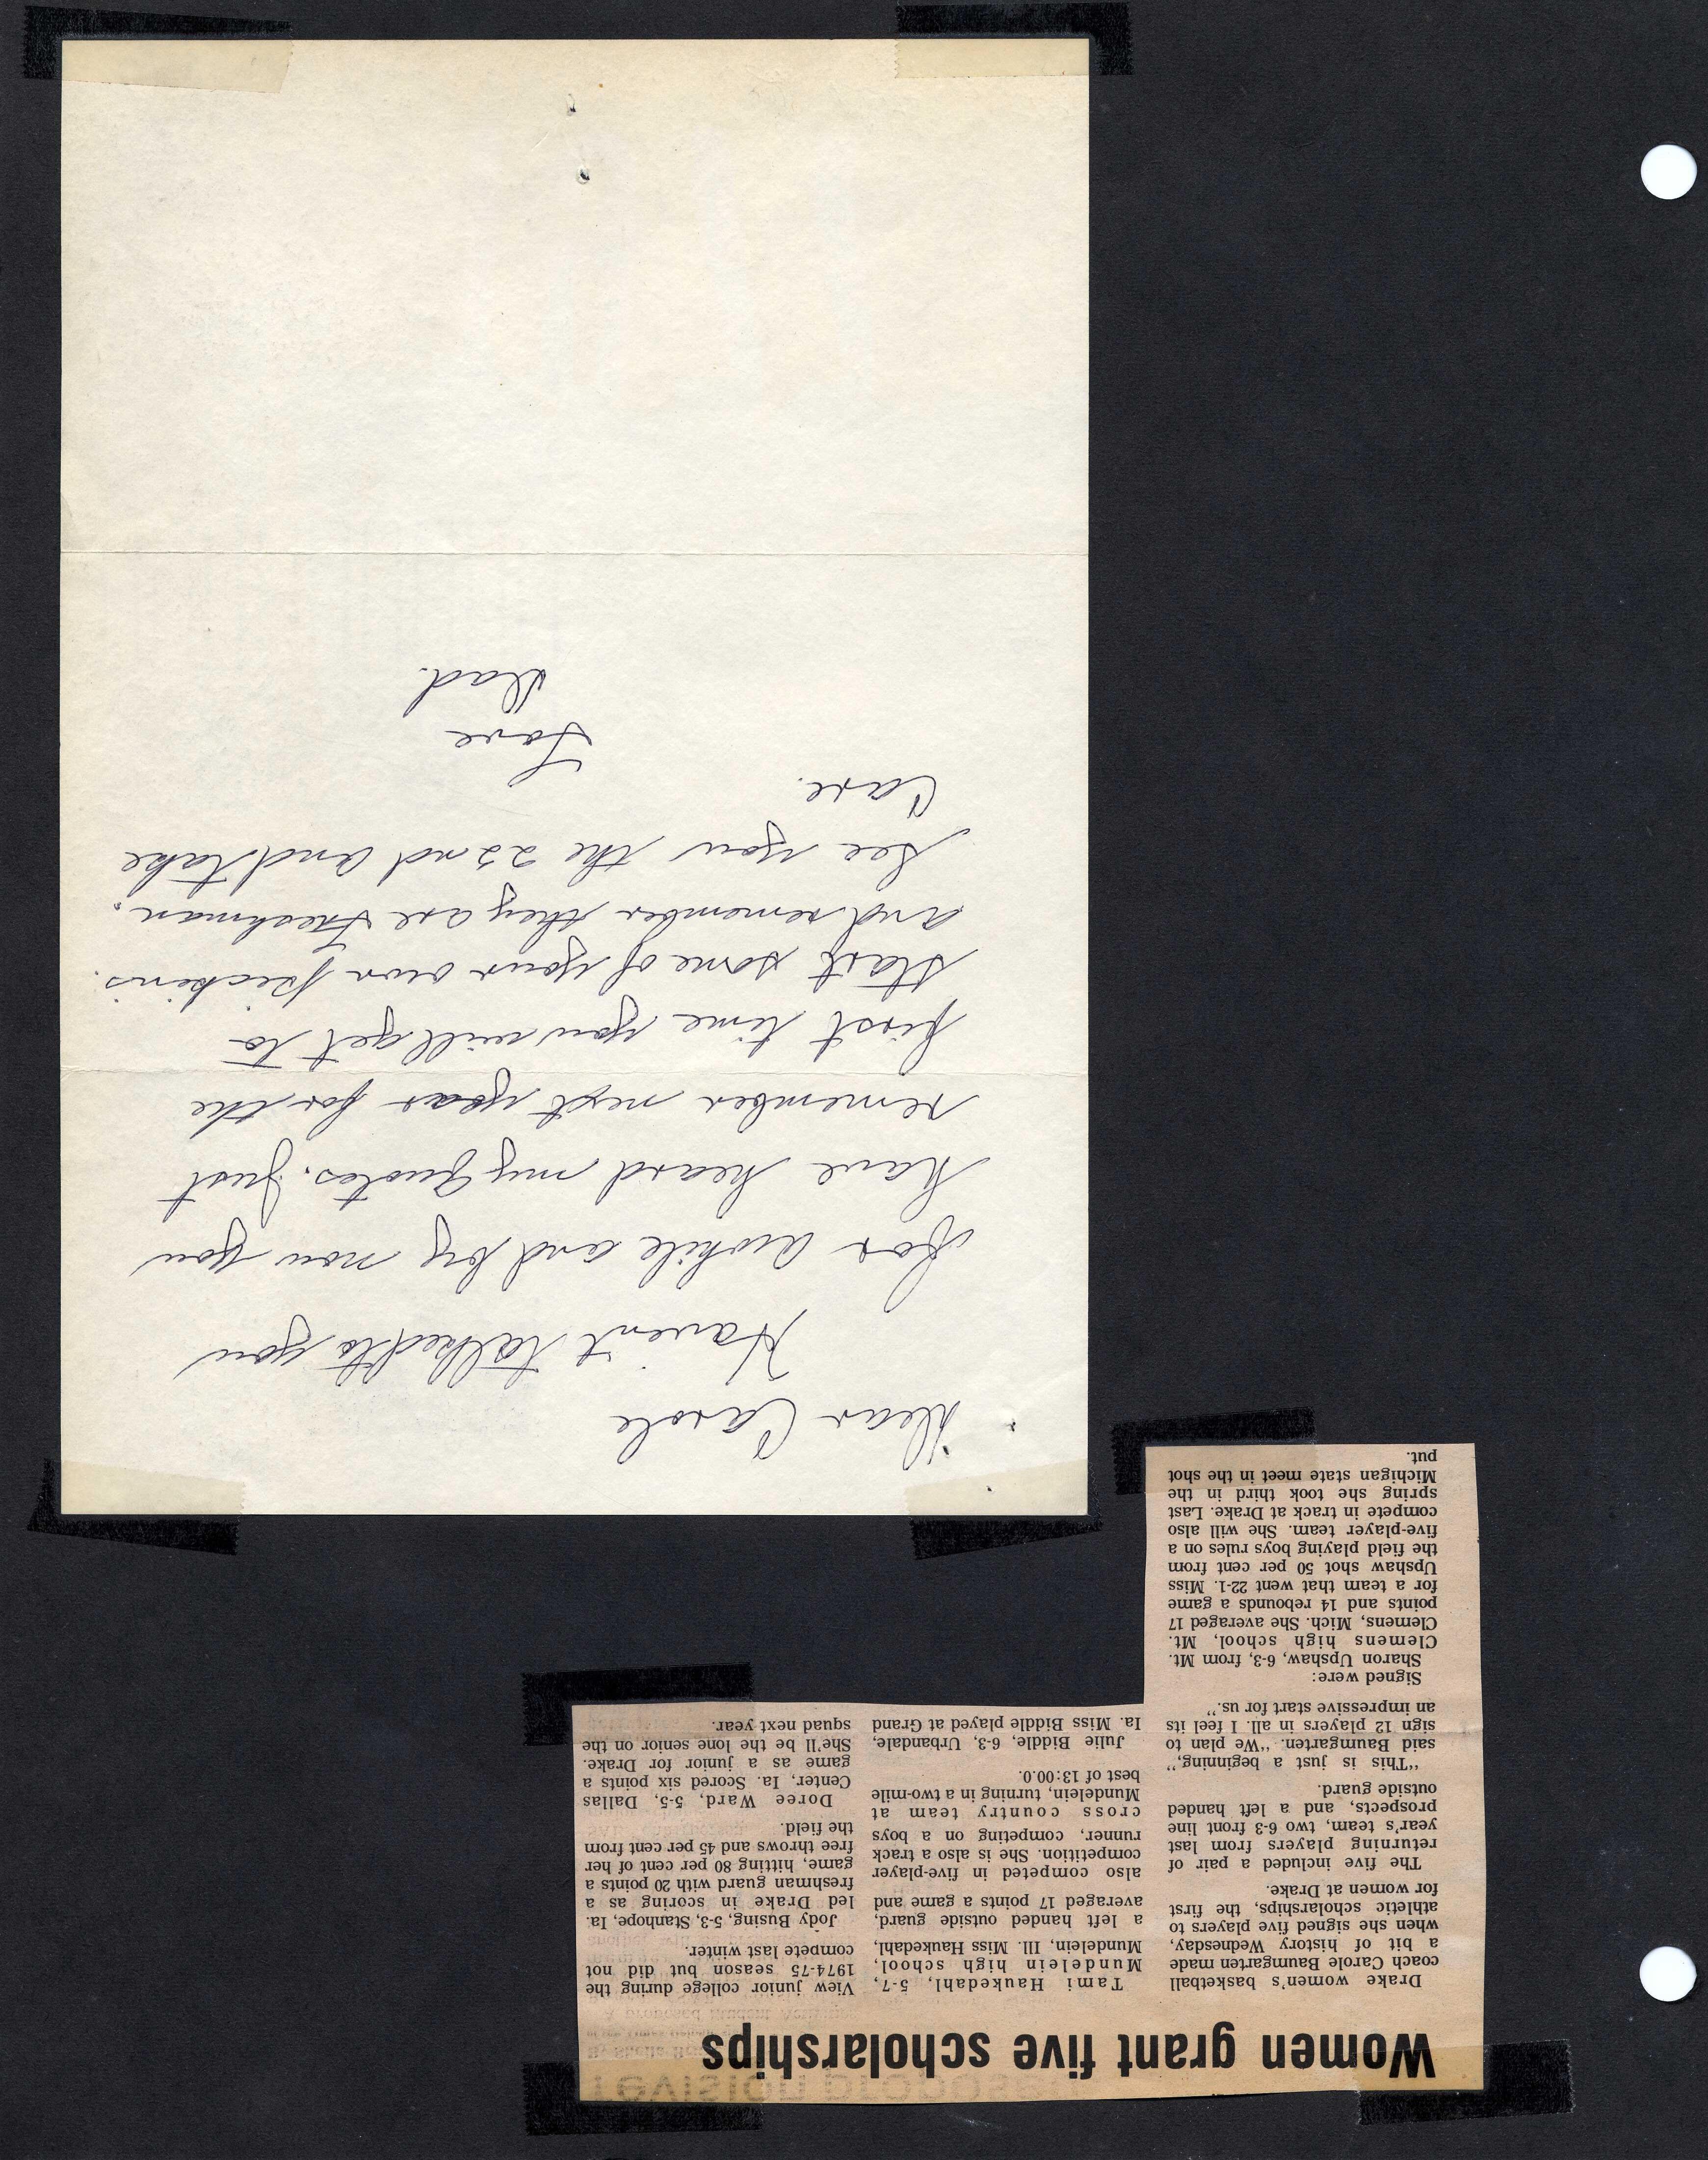 Women grant five scholarships
Drake women's basketball
coach Carole Baumgarten made
a bit of history Wednesday,
when she signed five players to
athletic scholarships, the first
for women at Drake.
The five included a pair of
returning players from last
year's team, two 6-3 front line
prospects, and a left handed
outside guard.
"This is just a beginning,"
said Baumgarten. "We plan to
sign 12 players in all. I feel its
an impressive start for us."
Signed were:
Sharon Upshaw, 6-3, from Mt.
Clemens high school, Mt.
Clemens, Mich. She averaged 17
points and 14 rebounds a game
for a team that went 22-1. Miss
Upshaw shot 50 per cent from
the field playing boys rules on a
five-player team. She will also
compete in track at Drake. Last
spring she took third in the
Michigan state meet in the shot
put.
Tami Haukedahl, 5-7,
Mundelein high school,
Mundelein, Ill. Miss Haukedahl,
a left handed outside guard,
averaged 17 points a game and
also competed in five-player
competition. She is also a track
runner, competing on a boys
cross country team at
Mundelein, turning in a two-mile
best of 13:00.0.
Julie Biddle, 6-3, Urbandale,
Ia. Miss Biddle played at Grand
View junior college during the
1974-75 season but did not
compete last winter.
Jody Busing, 5-3, Stanhope, Ia.
led Drake in scoring as a
freshman guard with 20 points a
game, hitting 80 per cent of her
free throws and 45 per cent from
the field.
Doree Ward, 5-5, Dallas
Center, Ia. Scored six points a
game as a junior for Drake.
She'll be the lone senior on the
squad next year.
Dear Carole
Haven't talked to you
for awhile and by now you
have heard my quotes. Just
remember next year for the
first time you will get to
start some of your own pickins.
and remember they are Freshman.
See you the 22nd and take
Care.
Love
Dad.